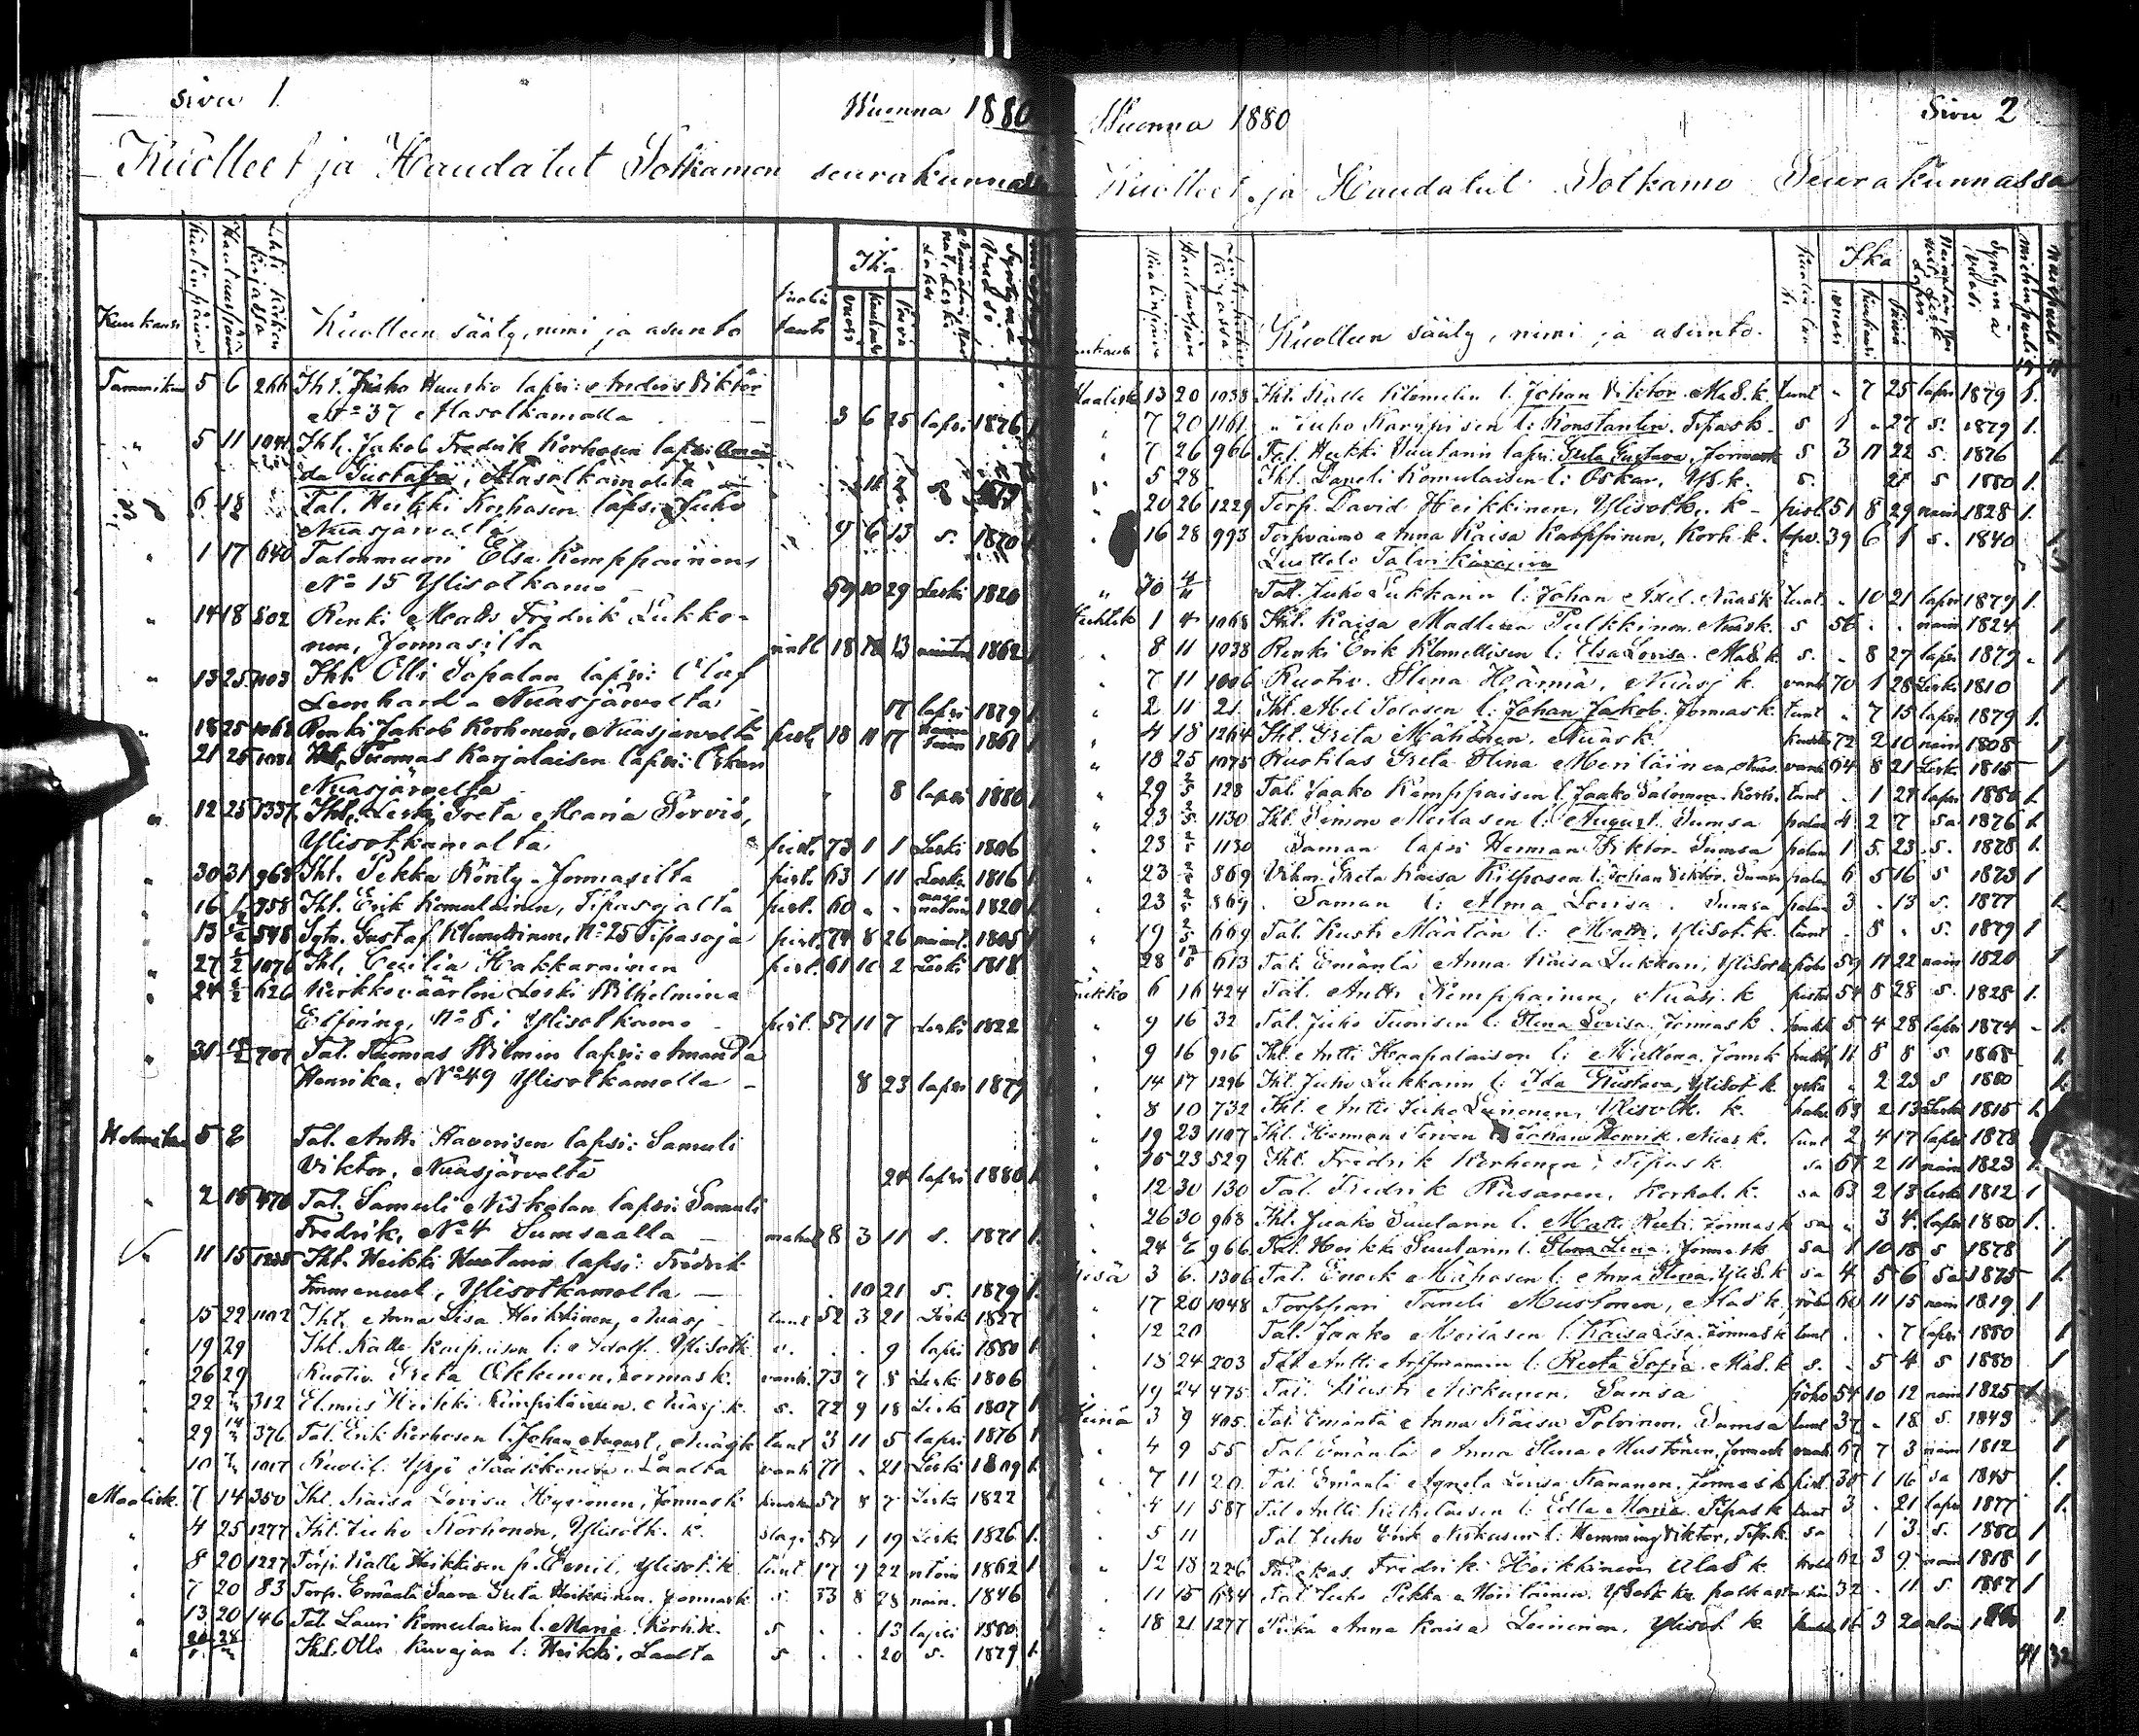 Sivu 1.
Wuonna 1880
Kuolleet ja Haudatut Sotkamon seurakunnassa
Kuukausi Kuolinpäivä Hautauspäivä Lehti kirkon kirjassa Kuolleen sääty, nimi ja asunto Kuolin tauti Ikä vuosi kuukausi päivä Syntymä vuosi
Tammikuu 5 6 266 Ihl. Juho Huusko lapsi: Anders Viktor
No 37 Alasotkamolla 3 6 25 lapsi 1876 1.
" 5 11 1041 Ihl. Jakob Fredrik Korhosen lapsi Aman
da Gustafa, Alasotkamolta
" 6 18 Tal. Heikki Korhosen lapsi Juho
Nuasjärveltä 9 6 13 s. 1870
" 1 17 640 Talonmuori Elsa Kemppainen
No 15 Ylisotkamo 59 10 29 Leski 1820
" 14 18 802 Renki Matts Fredrik Lukko-
nen, Jormasilta 18 13 1862
" 13 25 1103 Ihl. Olli Sopalan lapsi: Olaf
Leonhard Nuasjärvelta 17 lapsi 1879 1.
" 18 25 1068 Renki Jakob Korhonen, Nuasjärvelta pist. 18 11 17 1861 1
21 25 1031 Tuomas Karjalaisen lapsi: Oskar
Nuasjärvelta 8 lapsi 1880 1
" 12 25 1337 Ihl. Leski Greta Maria Servio,
Ylisotkamolta pist. 73 1 1 Leski 1806
" 30 31 968 Ihl. Pekka Könty Jormasilta pist. 63 1 11 Leski 1816 1
" 16 1/2 758 Ihl. Erik Komulainen, Tipasojalta pist. 60 " " 1820 1.
" 13 1/2 548 Gustaf Klemettinen, No 25 Tipasoja pist. 74 8 26 1805 1
" 27 1/2 1076 Ihl. Cecilia Hakkarainen pist. 61 10 2 Leski 1818
" 24 626 Kirkkoväärtin Leski Wilhelmina
Elfving, No 8 i Ylisotkamo pist. 57 11 7 Leski 1822
" 31 707 Tal. Thomas Wilmin lapsi: Amanda
Henrika, No 49 Ylisotkamolla 8 23 lapsi 1879
Helmikuu 5 8 Tal. Antti Haverisen lapsi: Samuli
Viktor, Nuasjärvelta 24 lapsi 1880 1.
" 2 15 476 Tal. Samuli Niskalan lapsi Samuli
Fredrik, No 4 Sumsaalla 8 3 11 s. 1871 1.
" 11 15 Ihl. Heikki Huotarin lapsi: Fredrik
Immanuel, Ylisotkamolla . 10 21 s. 1879 1.
" 15 22 1102 Ihl. Anna Lisa Heikkinen, Nuasj. tunt 52 3 21 Lesk 1827
" 19 29 Ihl. Kalle Kaipaisen l: Adolf Ylisotk s. . . 9 lapsi 1880 1.
" 26 29 Ruotiv. Greta Okkonen, Jormask. vanh. 73 7 8 Leski 1806
" 22 312 Elmus Heikki Kimpiläinen. Nuasj. k. s. 72 9 18 Lesk 1807 1
" 29 376 Tal. Erik Korhosen l. Johan August, Nuasjk tunt 3 11 5 lapsi 1876 1.
" 10 1017 Ruotil. Yrjö Pääkkönen Laalta vanh 71 . 21 Leski 1809 1.
Maalisk. 7 14 350 Ihl. Kaisa Lovisa Hyvönen, Jormask 57 8 7 Lesk 1822
" 4 25 1277 Ihl. Juho Korhonen, Ylisotk. k. slagi 54 1 19 Lesk 1826 1.
" 8 20 1227 Torp. Kalle Heikkisen p. Emil, Ylisot. k. tunt 17 9 22 ntoin 1862 1
" 7 20 83 Torp. Emäntä Saara Greta Heikkinen. Jormask s. 33 8 28 nain. 1846
" 13 20 146 Tal. Lauri Komulaisen l. Maria Korh.k. s . . 13 lapsi 1880
" Ihl. Olli Kuvajan l: Heikki, Laalta s . . 20 s. 1879 1.
Wuonna 1880
Sivu 2
Kuolleet ja Haudatut Sotkamo Seurakunnassa
Kuukausi Kuolinpäivä Hautauspäivä Kuolleen sääty, nimi ja asunto. Ikä vuosi kuukausi päivä Syntymä vuosi miehenpuoli
Maalisk 13 20 1038 Ihl. Kalle Klemetin l. Johan Viktor. AlaS.k. tunt " 7 25 lapsi 1879 1.
" 7 20 1161 " Juho Karppisen l: Konstantin. Tipask. s 1 " 27 s. 1879 1.
" 7 26 966 Tal. Heikki Suutarin lapsi Greta Gustava, Jormask s 3 11 22 s. 1876 1
" 5 28 Ihl. Taneli Komulaisen l: Oskar, Yls.k. s. 21 s 1880 1.
" 20 26 1229 Torp. David Heikkinen, Ylisotk. k pist 51 8 29 nain 1828 1.
" 16 28 993 Torpvaimo Anna Kaisa Karppinen, Korh.k. 39 6 1 s. 1840 1
" 30 4/4 Tal. Juho Lukkarin l: Johan Axel. Nuask tunt. " 10 21 lapsi 1879 1.
Huhtik 1 4 1068 Ihl. Kaisa Madlena Pulkkinen. Nuask. s 56 . . nain 1824 1
" 8 11 1038 Renki Erik Klemettisen l: Elsa Lovisa. AlaS.k. s. " 8 27 lapsi 1879 " 1
" 7 11 1006 Ruotiv. Stina Härmä, Nuasj k. vanh 70 1 28 Lesk 1810 1
" 2 11 21 Ihl. Abel Tolosen l: Johan Jakob. Jormask. tunt " 7 15 lapsi 1879 1.
" 4 18 1264 Ihl. Greta Mähönen. Nuask. 72 2 10 nain 1808 1
" 18 25 1075 Ruotilas Greta Stina Meriläinen Nuas. vanh 64 8 21 Lesk 1815 1
" 29 2/5 128 Tal. Jaako Kemppaisen l. Jaako Salomon. Korh. tunt . 1 24 lapsi 1880 1.
" 23 2/5 1130 Ihl. Simon Meilasen l: August. Sumsa palan 4 2 7 sa 1876 1.
" 23 2/5 1130 Saman lapsi Herman Viktor. Sumsa palan 1 5 23 s. 1878 1.
" 23 2/5 869 Greta Kaisa Kilposen l: Johan Viktor. Sumsa palan 6 5 16 s 1873 1
" 23 2/5 869 . Saman l: Alma Lovisa. Sumsa palan 3 . 13 s. 1877 1.
" 19 2/5 669 Tal. Kusti Määtän l: Matti, Ylisot.k. tunt . 8 " s. 1879 1
" 28 613 Tal. Emäntä Anna Kaisa Lukkari, Ylisotk 59 11 22 nain 1820 1
Toukko 6 16 424 Tal. Antti Kemppainen, Nuasj. k pistos 54 8 28 s. 1828 1.
" 9 16 32 Tal. Juho Tuomisen l: Stina Lovisa Jormask. 5 4 28 lapsi 1874 1.
" 9 16 916 Ihl. Antti Haapalaisen l: Jormk 11 8 8 s 1868 1.
" 14 17 1296 Ihl. Juho Lukkarin l: Ida Gustava, Ylisot.k yskä " 2 23 s 1880 1.
" 8 10 732 Ihl. Antti Juho Leinonen, Ylisotk. k. 63 2 13 Lesk 1815 1.
" 19 23 1107 Ihl. Herman Tervon l. Johan Henrik. Nuas k. tunt 2 4 17 lapsi 1878
" 15 23 529 Ihl. Fredrik Korhonen, Tipas k sa 57 2 11 nain 1823 1.
" 12 30 130 Tal. Fredrik Piisanen, Korhol. k. sa 63 2 13 lesk 1812 1
" 26 30 968 Ihl. Jaako Suutarin l. Matti Jormask sa " 3 4 lapsi 1880 1.
" 24 966 Tal. Heikki Suutarin l. Stina Lena. Jormask sa 1 10 18 s 1878 1.
Kesä 3 6 1306 Tal. Enock Mähösen l: Anna Stina YliS.k sa 4 5 6 sa 1875 1.
" 17 20 1048 Torppari Taneli Mustonen, AlaS k. 60 11 15 nain 1819 1.
" 12 20 Tal. Jaako Meilasen l. Kaisa Lisa Jormask tunt . . 7 lapsi 1880 1
" 15 24 203 Tal. Antti l: Reeta Sofia AlaS.k s. . 5 4 s 1880 1
" 19 24 475 Tal. Kusti Niskanen. Sumsa 54 10 12 nain 1825 1
Heinä 3 9 405 Tal. Emäntä Anna Kaisa Polvinen. Sumsa tunt 37 " 18 s. 1843 1
" 4 9 55 Tal. Emäntä Anna Stina Mustonen Jormask vanh 67 7 3 nain 1812 1
" 7 11 20 Tal. Emäntä Agneta Lovisa Kananen. Jormask pist. 35 1 16 sa 1845 1.
" 4 11 587 Tal. Antti Kilkelaisen l: Edla Maria Tipask tunt 3 . 21 lapsi 1877 1.
" 5 11 Tal. Juho Erik Niskasen l: Hemming Viktor, Tipk sa . 1 3 s. 1880 1
" 12 18 226 Fredrik Heikkinen AlaS k. 62 3 9 nain 1818 1
" 11 15 684 Tal. Juho Pekka Meriläinen YlSotk 32 . 11 s. 1847 1
" 18 21 1277 Piika Anna Kaisa Leinonen. Ylisot. k 16 3 20 1.
41 32